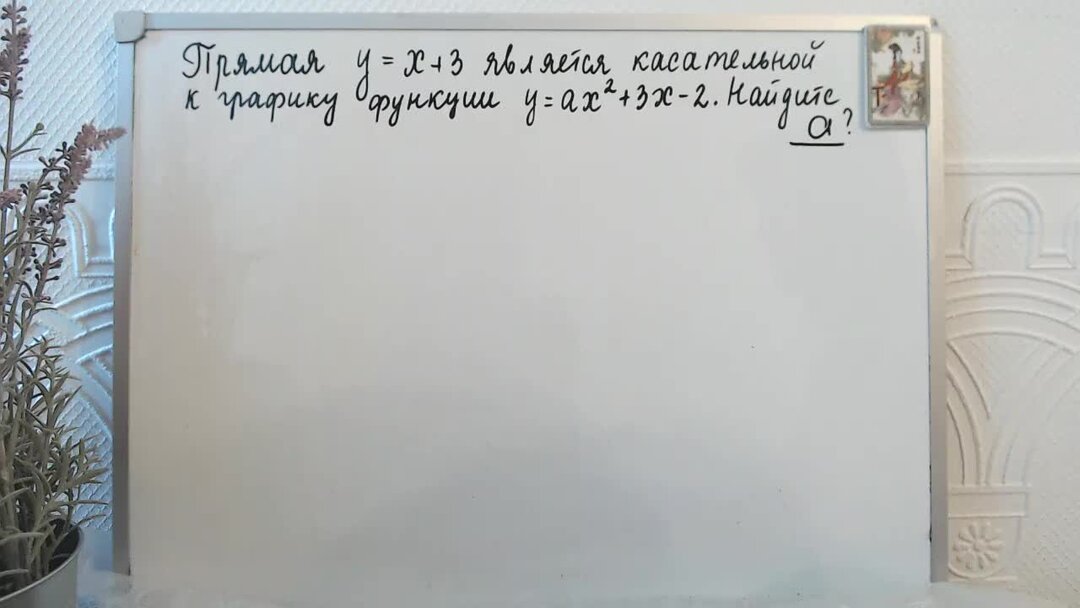 Прямая y = x+3 является касательной
к графику функции y = ax²+3x-2. Найдите
a?